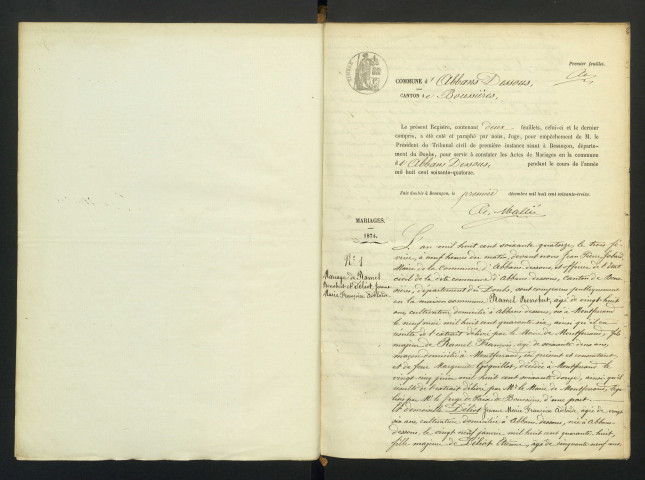 Premier feuillet.
COMMUNE d'Abbans Dessous,
CANTON de Boussières,
Le présent Registre, contenant deux feuillets, celui-ci et le dernier
compris, a été coté et paraphé par nous, Juge, pour empêchement de M. le
Président du Tribunal civil de première instance séant à Besançon, départe-
ment du Doubs, pour servir à constater les Actes de Mariages en la commune
d'Abbans Dessous, pendant le cours de l'année
mil huit cent soixante-quatorze.
Fait double à Besançon, le premier décembre mil huit cent soixante-treize.
MARIAGES.
1874.
N° 1
Mariage de Ramel
Jeanne
Marie Françoise
L'an mil huit cent soixante quatorze, le trois fé-
vrier, à neuf heures du matin, devant nous Jean Pierre
Maire de la Commune d'Abbans dessous, et officier de l'état
civil de la dite commune d'Abbans dessous, Canton de Bous-
sières, département du Doubs, sont comparus publiquement
en la maison commune Ramel agé de vingt huit
ans, cultivateur domicilié à Abbans dessous, né à Montferrand
le neuf mai mil huit cent quarante six, ainsi qu'il en
résulte de l'extrait délivré par le Maire de Montferrand, fils
majeur de Ramel François, agé de soixante deux ans
maçon domicilié à Montferrand, ici présent et consentant
et de feue Marguerite décédée à Montferrand le
vingt cinq juin mil huit cent soixante douze, ainsi qu'il
résulte de l'extrait délivré par Mr le Maire de Montferrand,
par Mr le Juge de Paix de Boussières d'une part
Et demoiselle Jeanne Marie Françoise agée de vingt
six ans, cultivatrice domiciliée à Abbans dessous, née à Abbans
dessous, le vingt neuf janvier mil huit cent quarante huit,
fille majeure de Etienne, agé de cinquante neuf ans